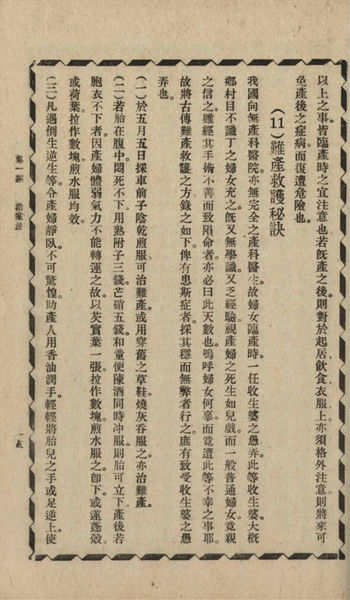 以上之事。皆臨產時之宜注意也。若旣產之後。則對於起居飲食衣服上。亦須格外注意。則將來可
免產後之症病。而復遭危險也。
(11)難產救護秘訣
我國向無產科醫院。亦無完全之產科醫生。故婦女臨產時。一任收生婆之愚弄。此等收生婆大槪
鄉村目不識丁之婦女充之。旣又無學識。又乏經驗。視產婦之死生如兒戲。而一般普通婦女竟親
之信之。雖經其手術不善。而致隕命者。亦必曰此天數也。嗚呼婦女何辜。而竟遭此等不幸之事耶。
故將古傳難產救護之方。錄之如下。俾有患斯症者。採其穩而無弊者行之。庶有致受收生婆之愚
弄也。
(一)於五月五日採車前子。陰乾煎服。可治難產。或用穿舊之草鞋。燒灰吞服之。亦治難產。
(二)若胎在腹中悶死不下。用熟附子三錢。芒硝五錢。和童便陳酒同時冲服。則胎可立下。產後若
胞衣不下者。因產婦體弱。氣力不能轉運之故。以芡實葉一張。拉作數塊。煎水服之。卽下。或蓮蓬殼。
或荷葉拉作數塊煎水服均效。
(三)凡遇倒生逆生等。令產婦靜臥。不可驚惶。助產人用香油潤手。輕輕將胎兒之手或足逆上。使
第一編 治療法